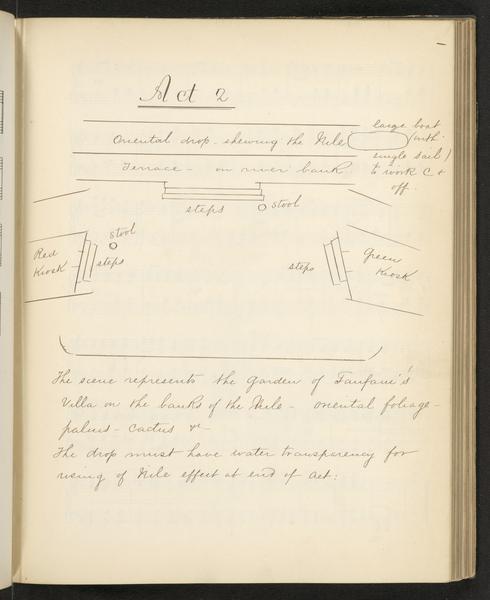 Act 2
Oriental drop - shewing the Nile
large boat
(with
single sail)
to work C &
off.
Terrace - on river bank
steps
stool
Red
Kiosk
stool
steps
steps
Green
Kiosk
The scene represents the Garden of Fanfani's
Villa on the banks of the Nile - oriental foliage -
palms - cactus &c -
The drop must have water transparency for
rising of Nile effect at end of Act: